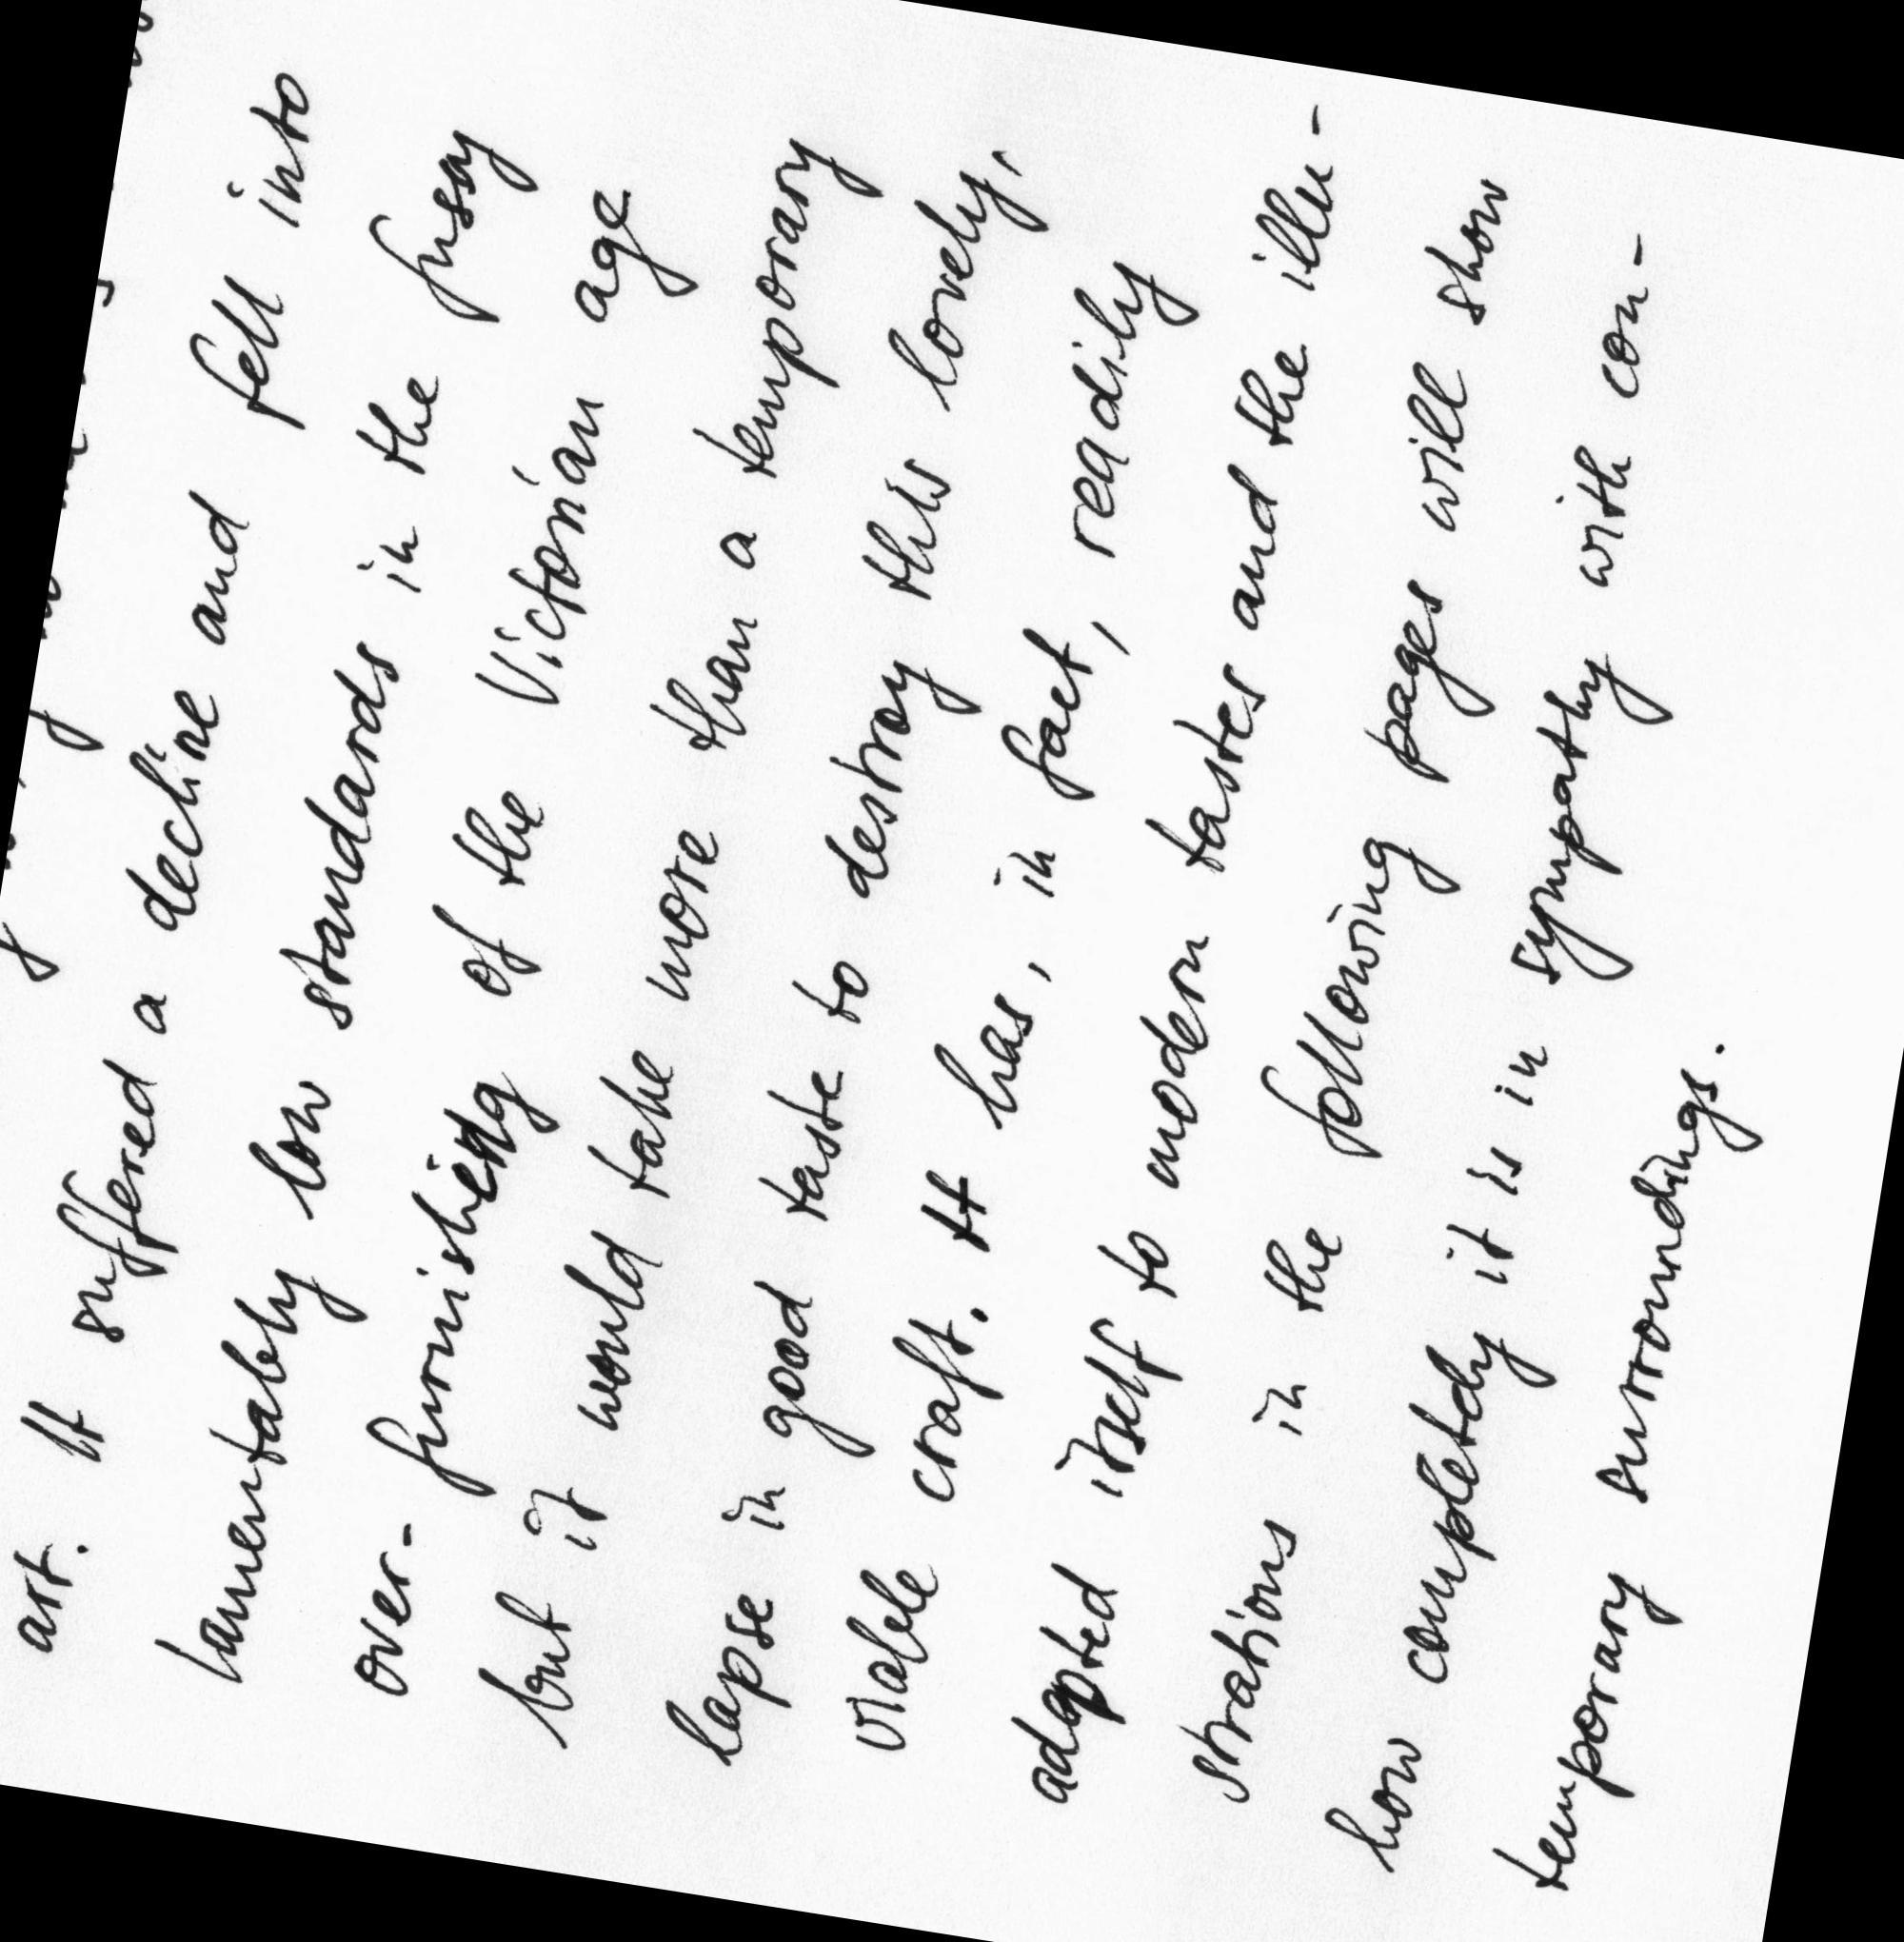 art. It suffered a decline and fell into
lamentably low standards in the fussy
over-furnishing of the Victorian age
but it would take more than a temporary
lapse in good taste to destroy this lovely,
viable craft. It has, in fact, readily
adapted itself to modern tastes and the illu-
strations in the following pages will show
how completely it is in sympathy with con-
temporary surroundings.